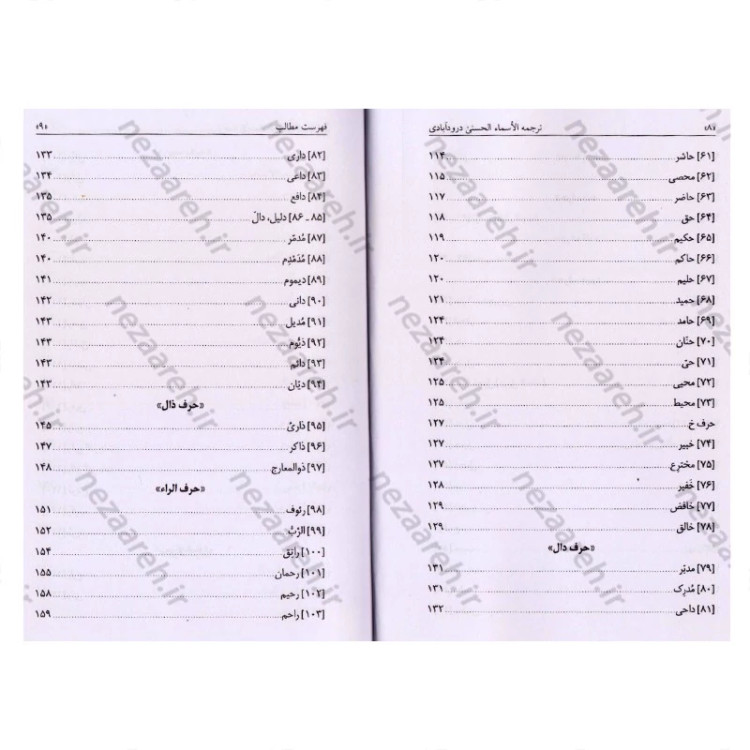 «۸» ترجمه الأسماء الحسنیٰ درودآبادی
[۶۱] حاشر ۱۱۴
[۶۲] محصی ۱۱۵
[۶۳] حاضر ۱۱۷
[۶۴] حق ۱۱۸
[۶۵] حکیم ۱۱۹
[۶۶] حاکم ۱۲۰
[۶۷] حلیم ۱۲۰
[۶۸] حمید ۱۲۱
[۶۹] حامد ۱۲۴
[۷۰] حنّان ۱۲۴
[۷۱] حیّ ۱۲۴
[۷۲] محیی ۱۲۵
[۷۳] محیط ۱۲۵
حرف خ ۱۲۷
[۷۴] خبیر ۱۲۷
[۷۵] مخترِع ۱۲۷
[۷۶] خَفیر ۱۲۸
[۷۷] خافض ۱۲۹
[۷۸] خالق ۱۲۹
«حرف دال»
[۷۹] مدبّر ۱۳۱
[۸۰] مُدرِک ۱۳۱
[۸۱] داحی ۱۳۲
فهرست مطالب «۹»
[۸۲] داری ۱۳۳
[۸۳] داعی ۱۳۴
[۸۴] دافع ۱۳۵
[۸۵ ـ ۸۶] دلیل، دالّ ۱۳۵
[۸۷] مُدمّر ۱۴۰
[۸۸] مُدَمْدِم ۱۴۰
[۸۹] دیموم ۱۴۱
[۹۰] دانی ۱۴۲
[۹۱] مُدیل ۱۴۳
[۹۲] دَیُّوم ۱۴۳
[۹۳] دائم ۱۴۳
[۹۴] دیّان ۱۴۳
«حرف ذال»
[۹۵] ذاریٔ ۱۴۵
[۹۶] ذاکر ۱۴۷
[۹۷] ذوالمعارج ۱۴۸
«حرف الراء»
[۹۸] رئوف ۱۵۱
[۹۹] الرّبّ ۱۵۲
[۱۰۰] راتِق ۱۵۴
[۱۰۱] رحمان ۱۵۵
[۱۰۲] رحیم ۱۵۸
[۱۰۳] راحم ۱۵۹
nezaareh.ir